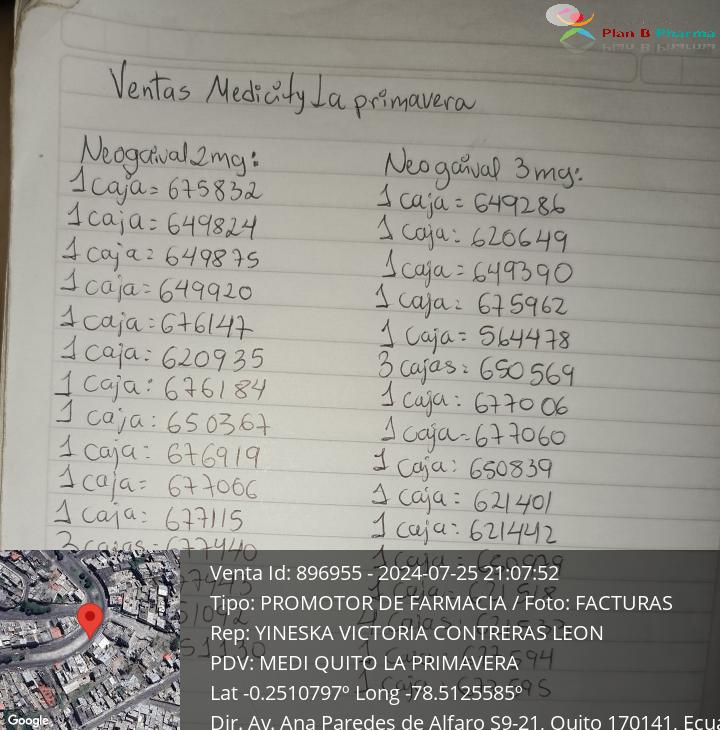 Plan B Pharma
Ventas Medicity La primavera
Neogaival 2mg:
1 caja = 675832
1 caja = 649824
1 caja = 649875
1 caja = 649920
1 caja = 676147
1 caja: 620935
1 caja: 676184
1 caja: 650367
1 caja: 676919
1 caja = 677066
1 caja: 677115
3 cajas = 677440
Neogaival 3mg:
1 caja = 649286
1 caja: 620649
1 caja = 649390
1 caja: 675962
1 caja = 564478
3 cajas: 650569
1 caja: 677006
1 caja = 677060
1 caja: 650839
1 caja: 621401
1 caja: 621442
1 caja:
Venta Id: 896955 - 2024-07-25 21:07:52
Tipo: PROMOTOR DE FARMACIA / Foto: FACTURAS
Rep: YINESKA VICTORIA CONTRERAS LEON
PDV: MEDI QUITO LA PRIMAVERA
Lat -0.2510797º Long -78.5125585º
Dir. Av. Ana Paredes de Alfaro S9-21, Quito 170141, Ecua
Google